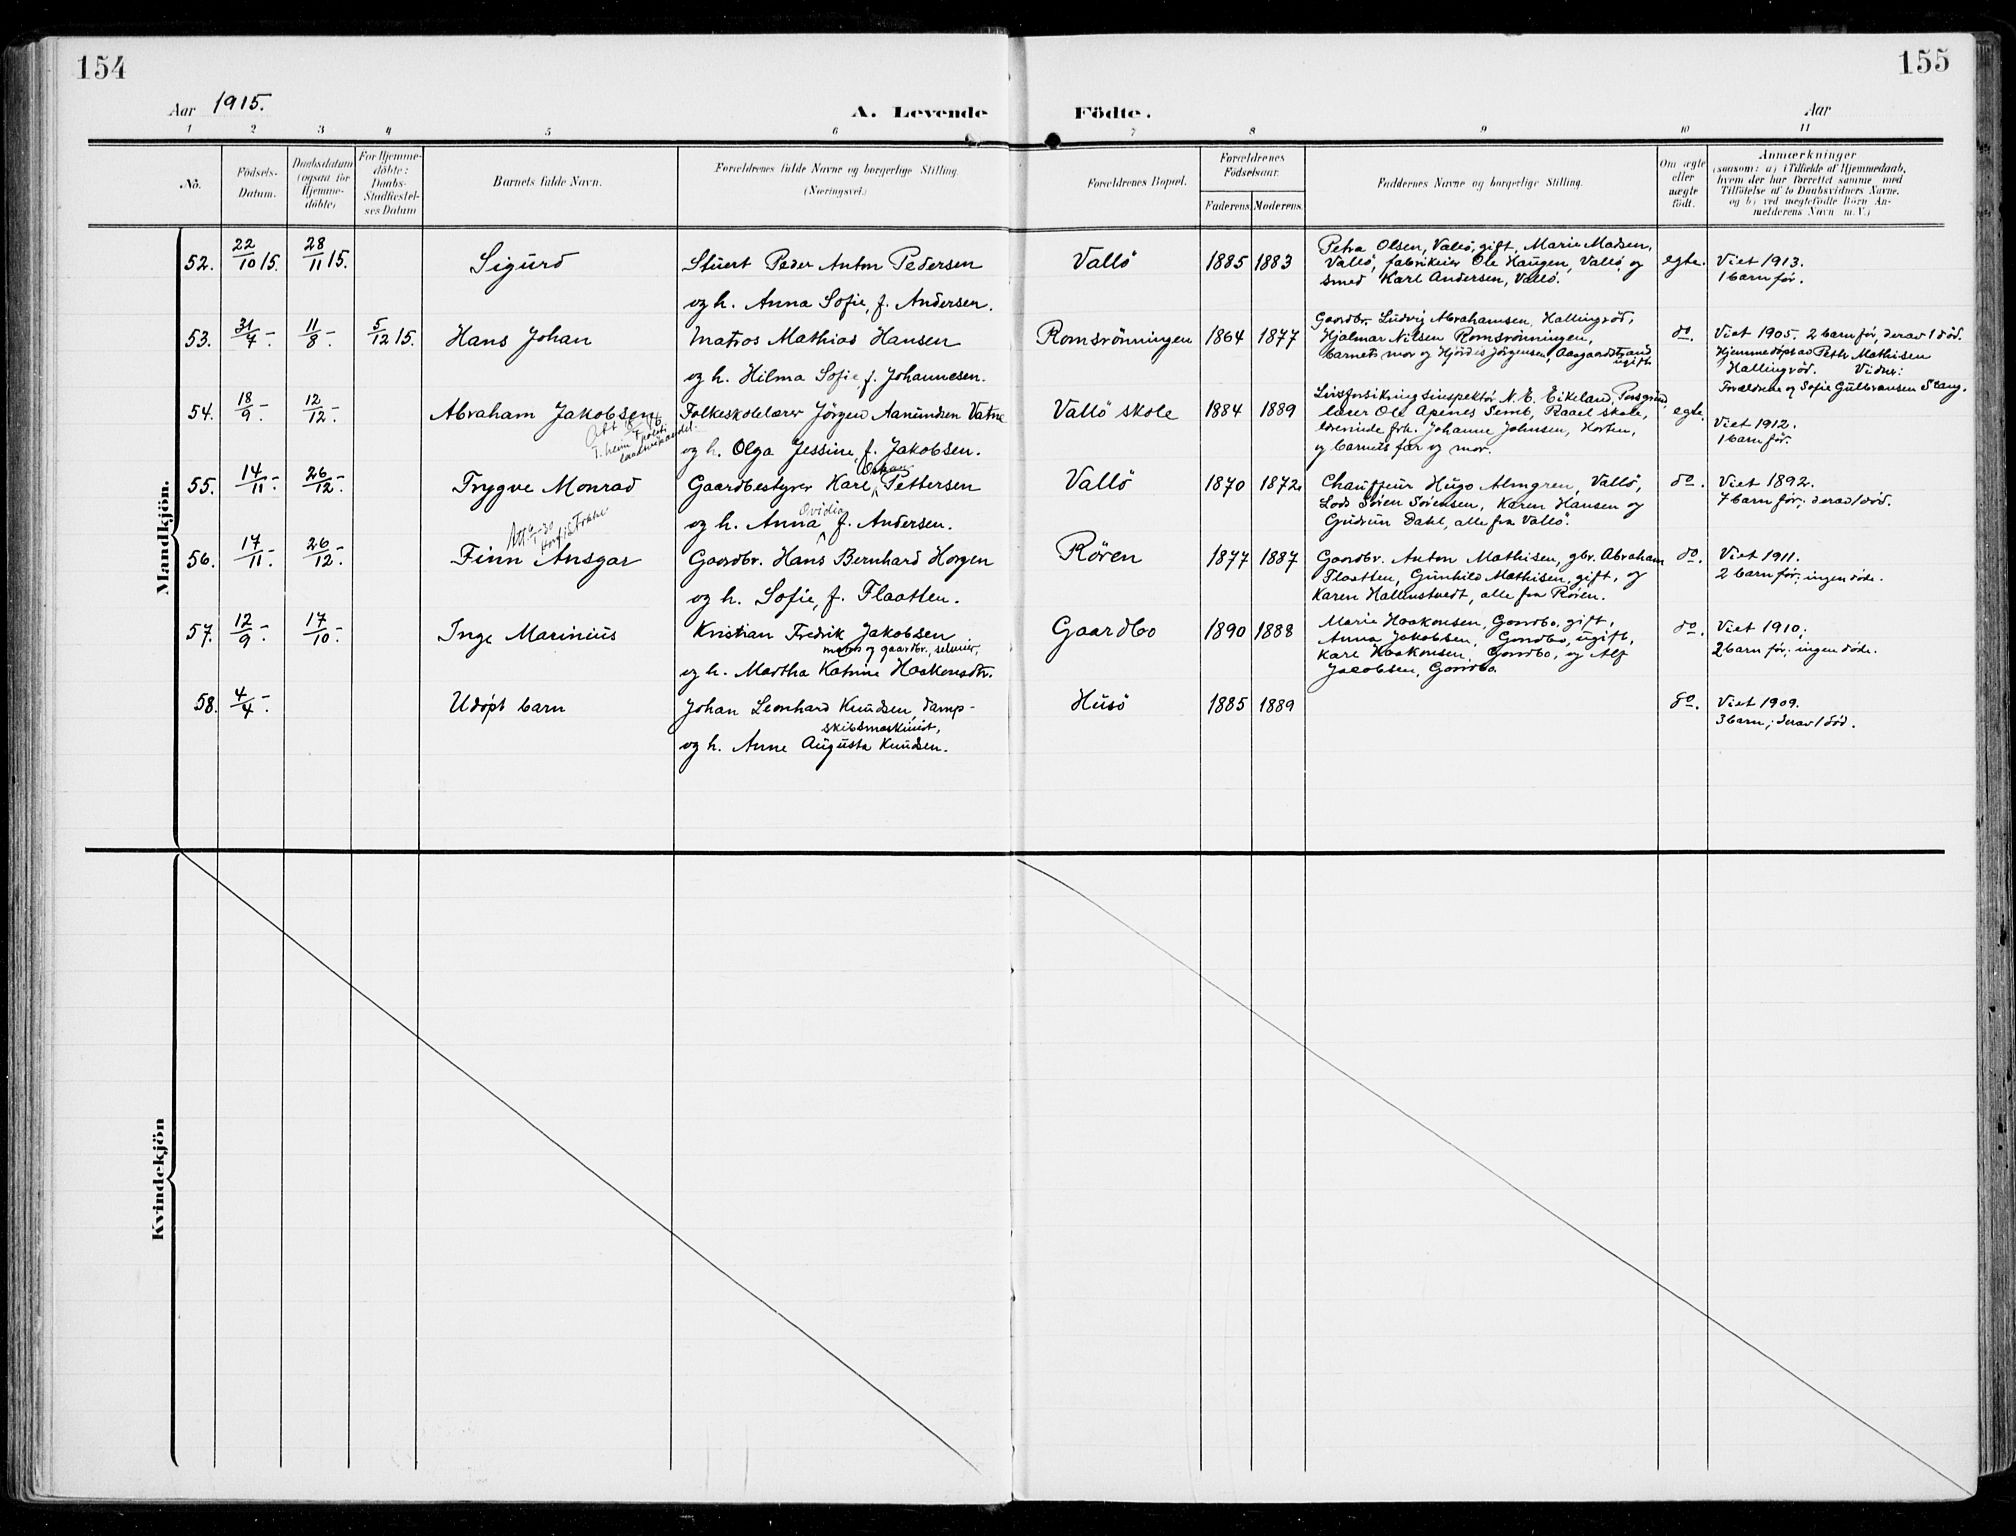 154
155
Aar 1915.
A. Levende Födte.
Aar
1 2 3 4 5 6 7 8 9 10 11
No.
Födsels-
Datum.
Daabsdatum
(ogsaa for
Hjemme-
döbte)
For Hjemme-
döbte:
Daabs-
Stadfæstel-
ses Datum
Barnets fulde Navn.
Forældrenes fulde Navne og borgerlige Stilling
(Næringsvei.)
Forældrenes Bopæl.
Forældrenes
Födselsaar.
Faderens. Moderens.
Faddernes Navne og borgerlige Stilling.
Om ægte
eller
uægte
födt.
Anmærkninger
(saasom: a) i Tilfælde af Hjemmedaab,
hvem der har forrettet samme med
Tilföielse af to Daabsvidners Navne,
og b) ved uægtefödte Börn An-
melderens Navn m. V.)
Mandkjön.
52. 22/10 15. 28/11 15. Sigurd
Stuert Peder Anton Pedersen
og h. Anna Sofie, f. Andersen.
Vallö 1885 1883
Petra Olsen, Vallö, gift, Marie Madsen,
Vallö, fabrikeier Ole Haugen, Vallö, og
smed Karl Andersen, Vallö.
egte. Viet 1913.
1 barn før.
53. 31/7 - 11/8 - 5/12 15. Hans Johan
Matros Mathias Hansen
og h. Hilma Sofie, f. Johannesen.
Romsrönningen 1864 1877
Gaardbr. Ludvig Abrahamsen, Hallingröd,
Hjalmar Nilsen Romsrönningen,
barnets mor og Hjördis Jörgensen, Aasgaardstrand
ugift
do. Viet 1905. 2 barn før, derav 1 död.
Hjemmedöpt av Petr. Mathisen
Hallingröd. Vidner:
Forældrene og Sofie Gulbransen Stang.
54. 18/9 - 12/12 - Abraham Jakobsen
Folkeskolelærer Jörgen Aanundsen Vatne
og h. Olga Jessine, f. Jakobsen.
Vallö skole 1884 1889
Livsforsikringsinspektör N. E. Eikeland, Porsgrund,
lærer Ole Apenes Semb, Raael skole,
lærerinde frk. Johanne Johnsen, Horten,
og barnets far og mor.
egte. Viet 1912.
1 barn før.
55. 14/11 - 26/12 - Trygve Monrad
Gaardbestyrer Karl Oskar Pettersen
og h. Anna Ovidia f. Andersen.
Vallö 1870 1872
Chauffeur Hugo Almgren, Vallö,
Lods Sören Sörensen, Karen Hansen og
Gudrun Dahl, alle fra Vallö.
do. Viet 1892.
7 barn før; derav 1 död.
56. 17/11 - 26/12 - Finn Ansgar
Gaardbr. Hans Bernhard Horgen
og h. Sofie, f. Flaatten.
Rören 1877 1887
Gaardbr. Anton Mathisen, gbr. Abraham
Flaatten, Gunhild Mathisen, gift, og
Karen Hallenstvedt, alle fra Rören.
do. Viet 1911.
2 barn før; ingen döde.
57. 12/9 - 17/10 - Inge Marinius
Kristian Fredrik Jakobsen
og gaardbr., selveier,
og h. Martha Katrine Haakensdtr.
Gaardbo 1890 1888
Marie Haakonsen, Gaardbo, gift,
Anna Jakobsen, Gaardbo, ugift,
Karl Haakonsen, Gaardbo, og Alf
Jacobsen, Gaardbo.
do. Viet 1910;
2 barn før; ingen döde.
58. 4/4 - Udöpt barn
Johan Leonhard Knudsen, damp-
skibsmaskinist,
og h. Anne Augusta Knudsen.
Husö 1885 1889
do. Viet 1909.
3 barn; derav 1 död.
Kvindekjön